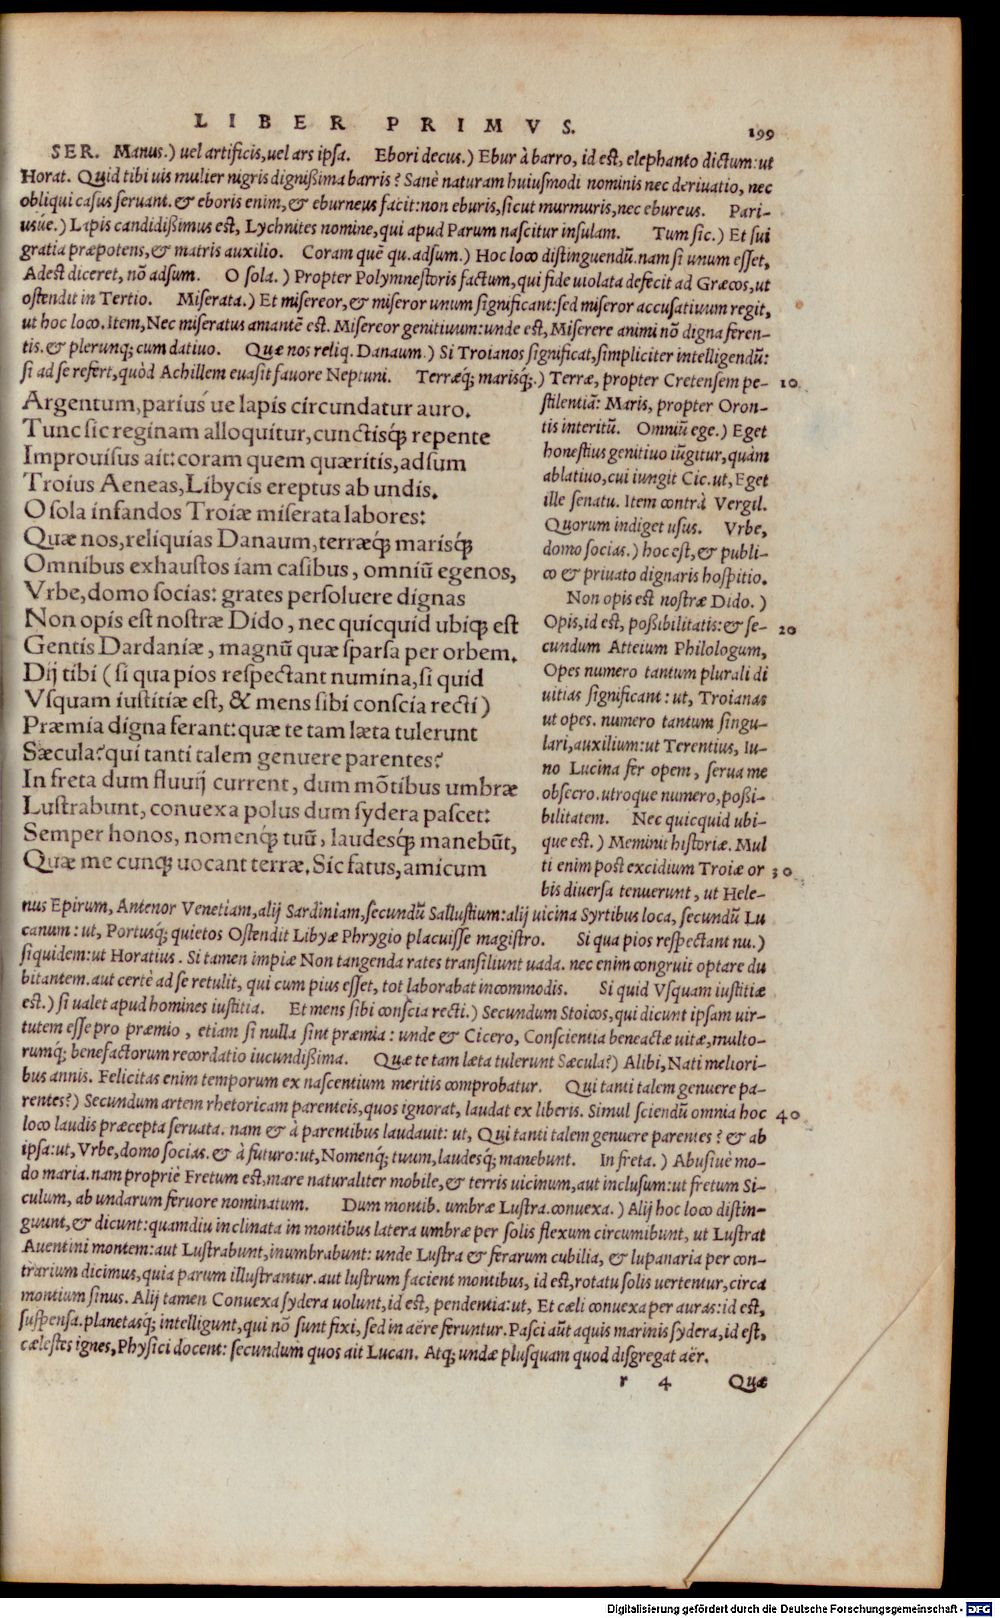 LIBER PRIMVS. 199
SER. Manus.) uel artificis, uel ars ipsa. Ebori decus.) Ebur à barro, id est, elephanto dictum: ut
Horat. Quid tibi uis mulier nigris dignißima barris? Sanè naturam huiusmodi nominis nec deriuatio, nec
obliqui casus seruant. & eboris enim, & eburneus facit: non eburis, sicut murmuris, nec ebureus. Pari-
usúe.) Lapis candidißimus est, Lychnites nomine, qui apud Parum nascitur insulam. Tum sic.) Et sui
gratia præpotens, & matris auxilio. Coram quẽ qu. adsum.) Hoc loco distinguendũ. nam si unum esset,
Adest diceret, nõ adsum. O sola.) Propter Polymnestoris factum, qui fide uiolata defecit ad Græcos, ut
ostendit in Tertio. Miserata.) Et misereor, & miseror unum significant: sed miseror accusatiuum regit,
ut hoc loco. Item, Nec miseratus amantẽ est. Misereor genitiuum: unde est, Miserere animi nõ digna feren-
tis. & plerunq; cum datiuo. Quæ nos reliq. Danaum.) Si Troianos significat, simpliciter intelligendũ:
si ad se refert, quòd Achillem euasit fauore Neptuni. Terræq́; marisq́;.) Terræ, propter Cretensem pe- 10
Argentum, parius ue lapis circundatur auro.
Tunc sic reginam alloquitur, cunctisq́; repente
Improuisus ait: coram quem quæritis, adsum
Troius Aeneas, Libycis ereptus ab undis.
O sola infandos Troiæ miserata labores:
Quæ nos, reliquias Danaum, terræq́; marisq́;
Omnibus exhaustos iam casibus, omniũ egenos,
Vrbe, domo socias: grates persoluere dignas
Non opis est nostræ Dido, nec quicquid ubiq; est
Gentis Dardaniæ, magnũ quæ sparsa per orbem.
Dij tibi (si qua pios respectant numina, si quid
Vsquam iustitiæ est, & mens sibi conscia recti)
Præmia digna ferant: quæ te tam læta tulerunt
Sæcula? qui tanti talem genuere parentes?
In freta dum fluuij current, dum mõtibus umbræ
Lustrabunt, conuexa polus dum sydera pascet:
Semper honos, nomenq́; tuũ, laudesq́; manebũt,
Quæ me cunq; uocant terræ. Sic fatus, amicum
stilentiã: Maris, propter Oron-
tis interitũ. Omniũ ege.) Eget
honestius genitiuo iũgitur, quàm
ablatiuo, cui iungit Cic. ut, Eget
ille senatu. Item contrà Vergil.
Quorum indiget usus. Vrbe,
domo socias.) hoc est, & publi-
co & priuato dignaris hospitio.
Non opis est nostræ Dido.)
Opis, id est, poßibilitatis: & se- 20
cundum Atteium Philologum,
Opes numero tantum plurali di
uitias significant: ut, Troianas
ut opes. numero tantum singu-
lari, auxilium: ut Terentius, Iu-
no Lucina fer opem, serua me
obsecro. utroque numero, poßi-
bilitatem. Nec quicquid ubi-
que est.) Meminit historiæ. Mul
ti enim post excidium Troiæ or 30
bis diuersa tenuerunt, ut Hele-
nus Epirum, Antenor Venetiam, alij Sardiniam, secundũ Sallustium: alij uicina Syrtibus loca, secundũ Lu
canum: ut, Portusq́; quietos Ostendit Libyæ Phrygio placuisse magistro. Si qua pios respectant nu.)
siquidem: ut Horatius. Si tamen impiæ Non tangenda rates transiliunt uada. nec enim congruit optare du
bitantem. aut certè ad se retulit, qui cum pius esset, tot laborabat incommodis. Si quid Vsquam iustitiæ
est.) si ualet apud homines iustitia. Et mens sibi conscia recti.) Secundum Stoicos, qui dicunt ipsam uir-
tutem esse pro præmio, etiam si nulla sint præmia: unde & Cicero, Conscientia beneactæ uitæ, multo-
rumq́; benefactorum recordatio iucundißima. Quæ te tam læta tulerunt Sæcula?) Alibi, Nati meliori-
bus annis. Felicitas enim temporum ex nascentium meritis comprobatur. Qui tanti talem genuere pa-
rentes?) Secundum artem rhetoricam parenteis, quos ignorat, laudat ex liberis. Simul sciendũ omnia hoc 40
loco laudis præcepta seruata. nam & à parentibus laudauit: ut, Qui tanti talem genuere parentes? & ab
ipsa: ut, Vrbe, domo socias. & à futuro: ut, Nomenq́; tuum, laudesq́; manebunt. In freta.) Abusiuè mo-
do maria. nam propriè Fretum est, mare naturaliter mobile, & terris uicinum, aut inclusum: ut fretum Si-
culum, ab undarum feruore nominatum. Dum montib. umbræ Lustra. conuexa.) Alij hoc loco distin-
guunt, & dicunt: quamdiu inclinata in montibus latera umbræ per solis flexum circumibunt, ut Lustrat
Auentini montem: aut Lustrabunt, inumbrabunt: unde Lustra & ferarum cubilia, & lupanaria per con-
trarium dicimus, quia parum illustrantur. aut lustrum facient montibus, id est, rotatu solis uertentur, circa
montium sinus. Alij tamen Conuexa sydera uolunt, id est, pendentia: ut, Et cæli conuexa per auras: id est,
suspensa. planetasq́; intelligunt, qui nõ sunt fixi, sed in aëre feruntur. Pasci aũt aquis marinis sydera, id est,
cælestes ignes, Physici docent: secundum quos ait Lucan. Atq; undæ plusquam quod disgregat aër.
r 4 Quæ
Digitalisierung gefördert durch die Deutsche Forschungsgemeinschaft - DFG